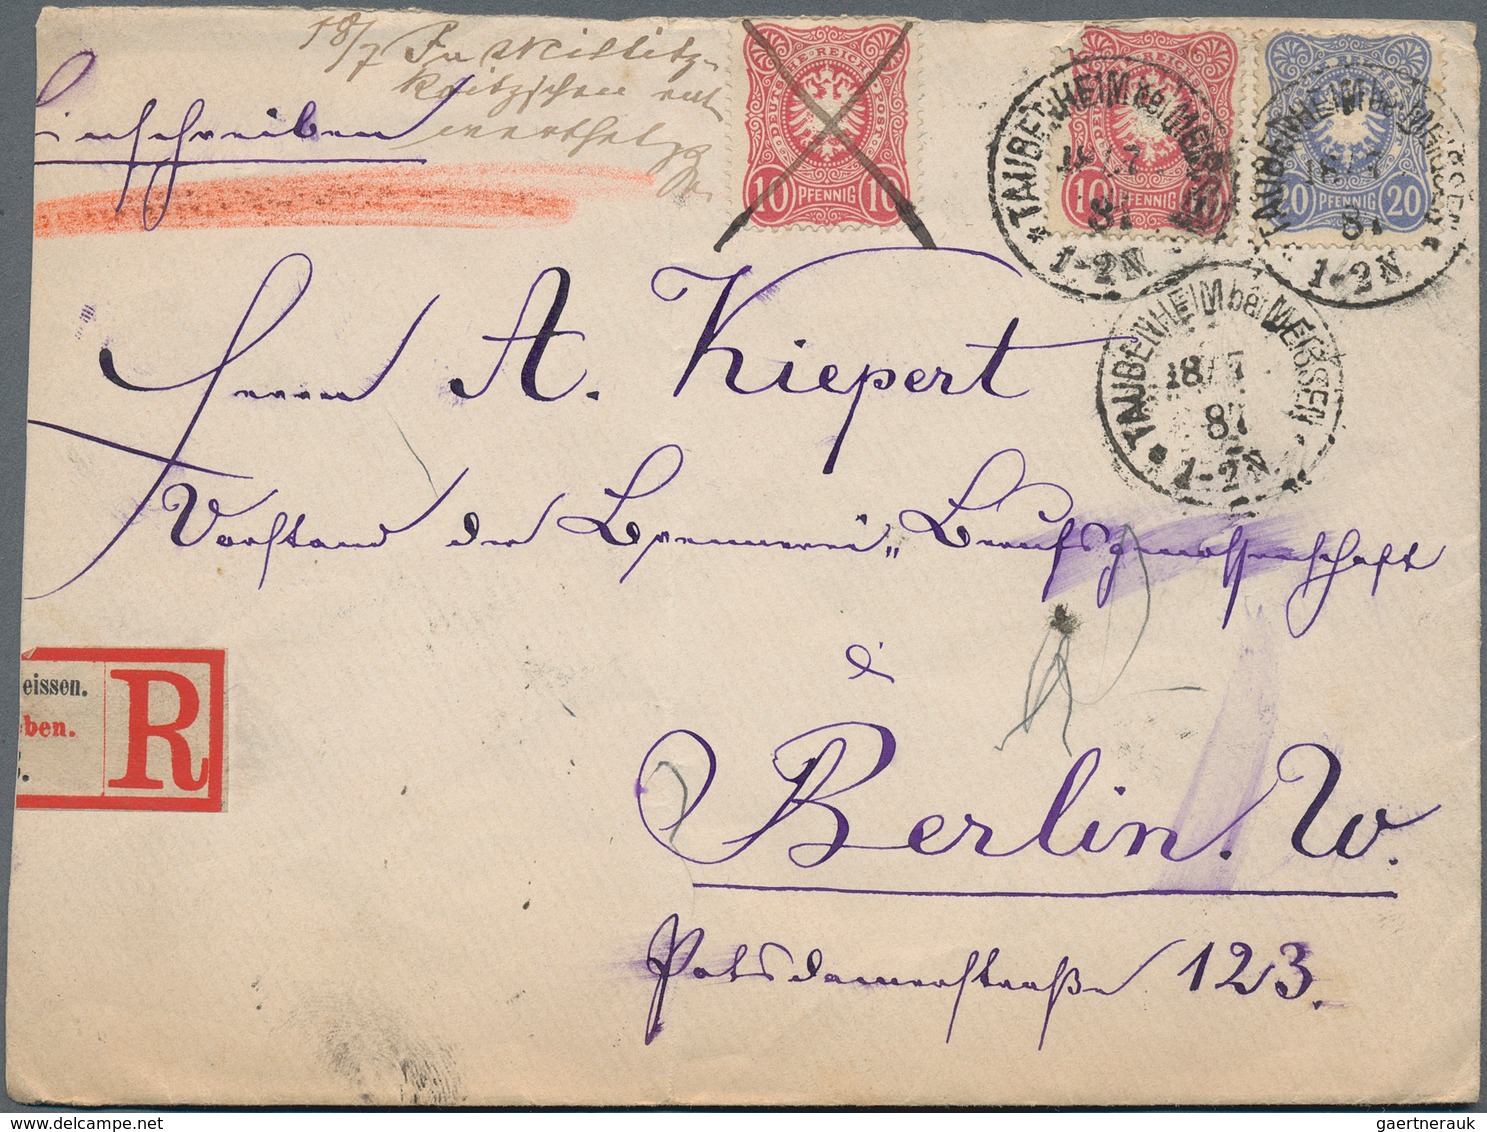 18/7 In Miltitz-
Roitzschen ent
werthet
Einschreiben
DEUTSCHE REICHS-POST
10 PFENNIG 10
10 PFENNIG 10
20 PFENNIG 20
* TAUBENHEIM bei MEISSEN *
18/7
87
1-2N.
* TAUBENHEIM bei MEISSEN *
18/7
87
1-2N.
* TAUBENHEIM bei MEISSEN *
18/7
87
1-2N.
Herrn A. Kiepert
Vorstand der Brennerei-Berufsgenossenschaft
in
eissen.
ben.
R
Berlin. W.
Potsdamerstraße 123.
gaertnerauk @ delcampe.net